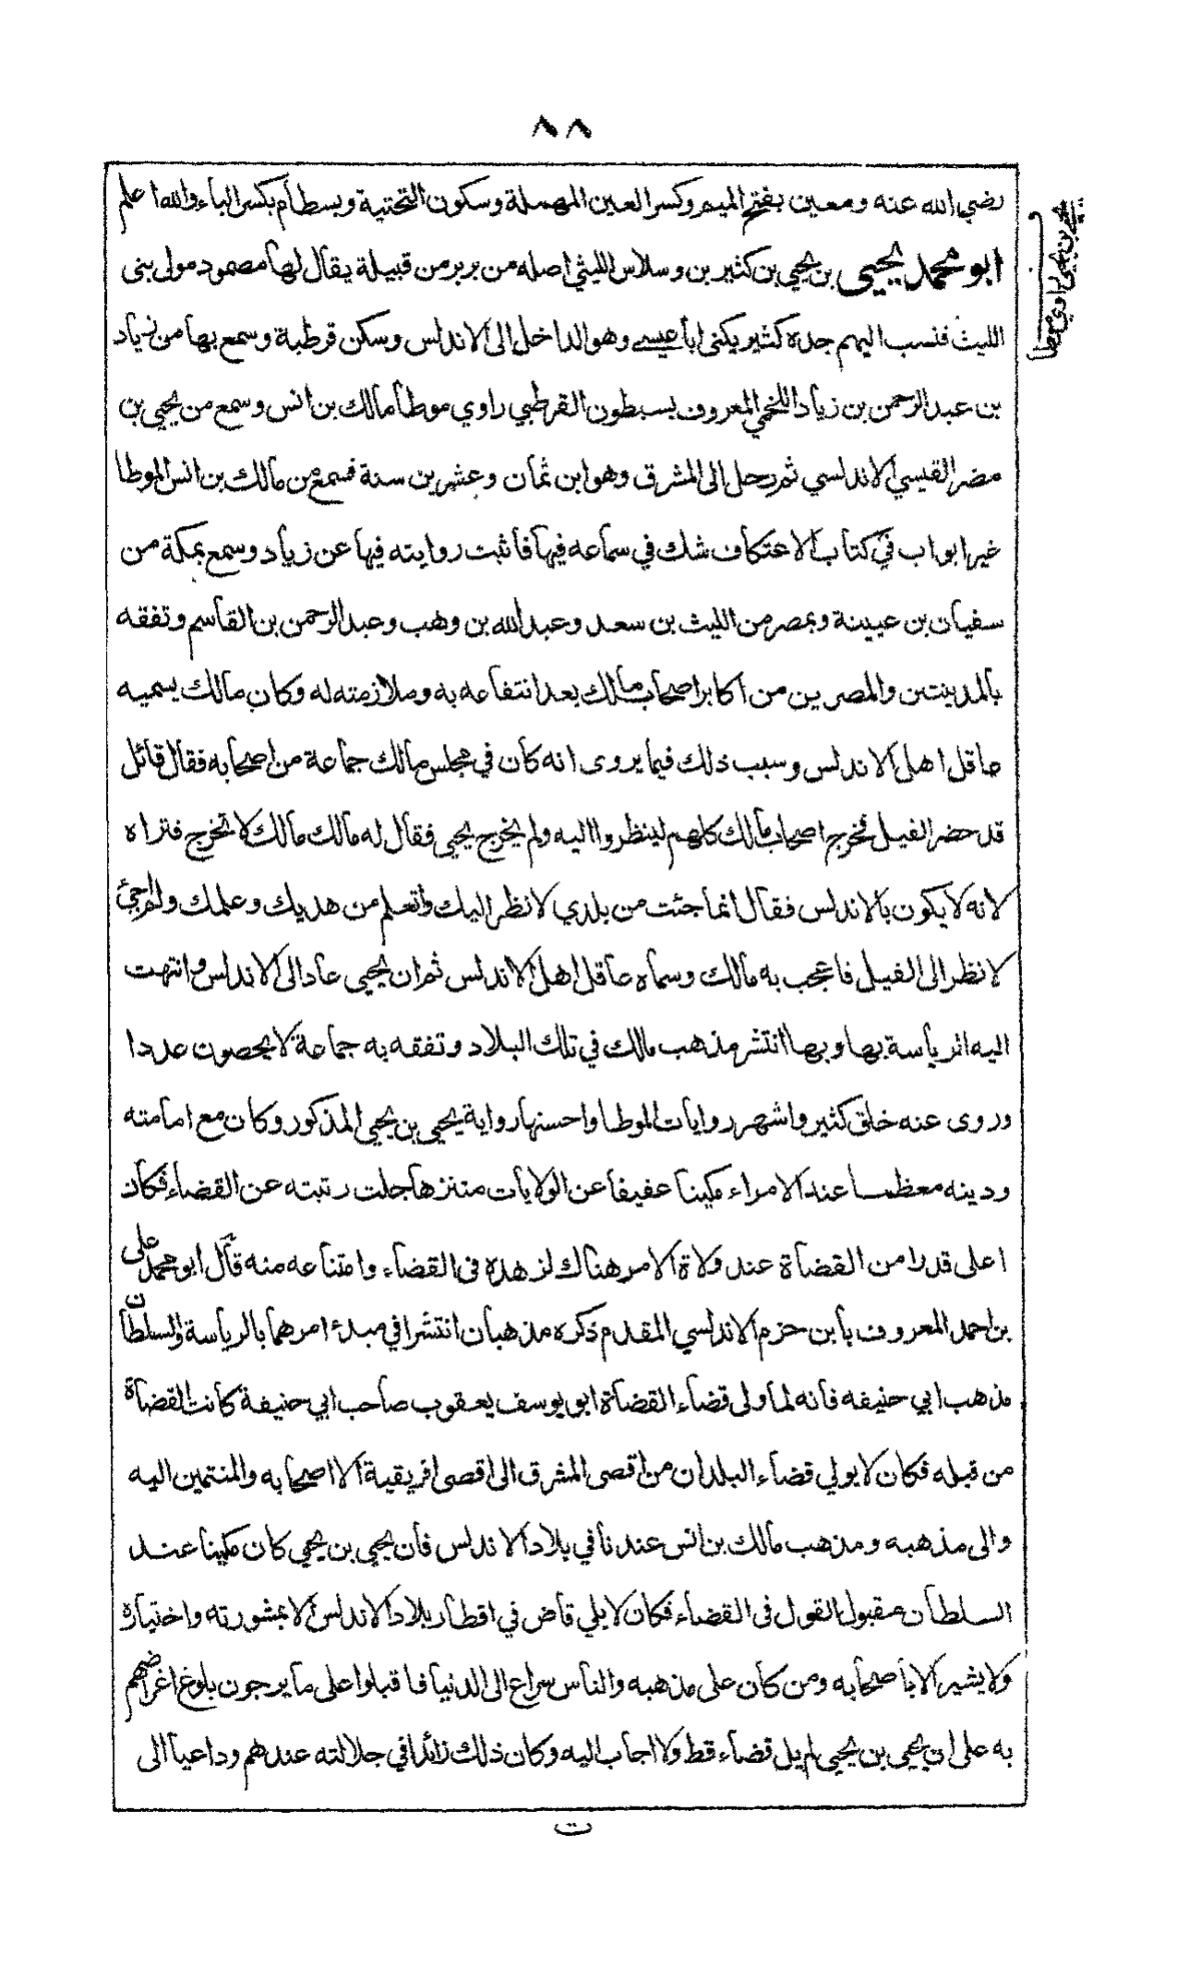 ٨٨
رضي الله عنه ومعين بفتح الميم وكسر العين المهملة وسكون التحتية وبسطام بكسر الباء والله اعلم
ابو محمد يحيى بن يحيى بن كثير بن وسلاس الليثي اصله من بربر من قبيلة يقال لها مصمود مولى بنى
الليث فنسب اليهم جده كثير يكنى ابا عيسى وهو الداخل الى الاندلس وسكن قرطبة وسمع بها من زياد
بن عبد الرحمن بن زياد اللخمي المعروف بسبطون القرطبي راوي موطأ مالك بن انس وسمع من يحيى بن
مضر القيسي الاندلسي ثم رحل الى المشرق وهو ابن ثمان وعشرين سنة فسمع من مالك بن انس الموطا
غير ابواب في كتاب الاعتكاف شك في سماعه فيها فاثبت روايته فيها عن زياد وسمع بمكة من
سفيان بن عيينة وبمصر من الليث بن سعد وعبد الله بن وهب وعبد الرحمن بن القاسم وتفقه
بالمدينتين والمصرين من اكابر اصحاب مالك بعد انتفاعه به وملازمته له وكان مالك يسميه
عاقل اهل الاندلس وسبب ذلك فيما يروى انه كان في مجلس مالك جماعة من اصحابه فقال قائل
قد حضر الفيل فخرج اصحاب مالك كلهم لينظروا اليه ولم يخرج يحيى فقال له مالك مالك لا تخرج فتراه
لانه لا يكون بالاندلس فقال انما جئت من بلدي لانظر اليك واتعلم من هديك وعلمك ولم اجئ
لانظر الى الفيل فاعجب به مالك وسماه عاقل اهل الاندلس ثم ان يحيى عاد الى الاندلس وانتهت
اليه الرياسة بها وبها انتشر مذهب مالك في تلك البلاد وتفقه به جماعة لا يحصون عددا
وروى عنه خلق كثير واشهر روايات الموطا واحسنها رواية يحيى بن يحيى المذكور وكان مع امامته
ودينه معظما عند الامراء مكينا عفيفا عن الولايات متنزها جلت رتبته عن القضاء فكان
اعلى قدرا من القضاة عند ولاة الامر هناك لزهده فى القضاء وامتناعه منه قال ابو محمد على
بن احمد المعروف بابن حزم الاندلسي المقدم ذكره مذهبان انتشرا في مبدء امرهما بالرياسة والسلطان
مذهب ابي حنيفه فانه لما ولى قضاء القضاة ابو يوسف يعقوب صاحب ابي حنيفة كانت القضاة
من قبله فكان لا يولي قضاء البلدان من اقصى المشرق الى اقصى افريقية الا اصحابه والمنتمين اليه
والى مذهبه ومذهب مالك بن انس عندنا في بلاد الاندلس فان يحيى بن يحيى كان مكينا عند
السلطان مقبول القول فى القضاء فكان لا يلي قاض في اقطار بلاد الاندلس الا بمشورته واختياره
ولا يشير الا باصحابه ومن كان على مذهبه والناس سراع الى الدنيا فاقبلوا على ما يرجون بلوغ اغراضهم
به على ان يحيى بن يحيى لم يل قضاء قط ولا اجاب اليه وكان ذلك زائدا في جلالته عندهم وداعيا الى
ت
يحيى بن يحيى راوي موطا